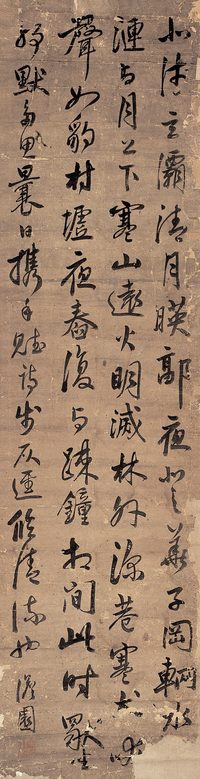 北涉玄灞清月暎郭夜登華子岡輞水
漣与月上下寒山遠火明滅林外深巷寒犬吠
聲如豹村墟夜舂復与踈鐘相間此時獨坐
静默多思曩日攜手賦詩步仄逕臨清流也 澹園